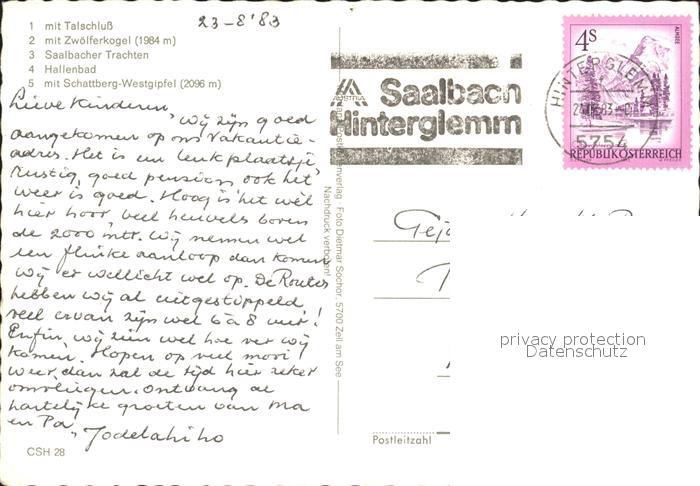 1 mit Talschluß
2 mit Zwölferkogel (1984 m)
3 Saalbacher Trachten
4 Hallenbad
5 mit Schattberg-Westgipfel (2096 m)
23-8'83
Lieve Kinderen
Wij zijn goed
aangekomen op ons Vakantie-
adres. Het is een leuk plaatsje
rustig, goed pension ook het
weer is goed. Hoog is het wel
hier hoor, veel heuvels boven
de 2000 mtr. Wij nemen wel
een flinke aanloop dan komen
wij er wellicht wel op. De Routes
hebben wij al uitgestippeld
veel ervan zijn wel 6 à 8 uur!
Enfin, wij zien wel hoe ver wij
komen. Hopen op veel mooi
weer, dan zal de tijd hier zeker
omvliegen. Ontvang de
hartelijke groeten van Ma
en Pa, Jodelahiho
CSH 28
Foto Dietmar Sochor, 5700 Zell am See
Nachdruck verboten!
AUSTRIA
Saalbach
Hinterglemm
4S
ALMSEE
REPUBLIK ÖSTERREICH
HINTERGLEMM
5754
privacy protection
Datenschutz
Postleitzahl